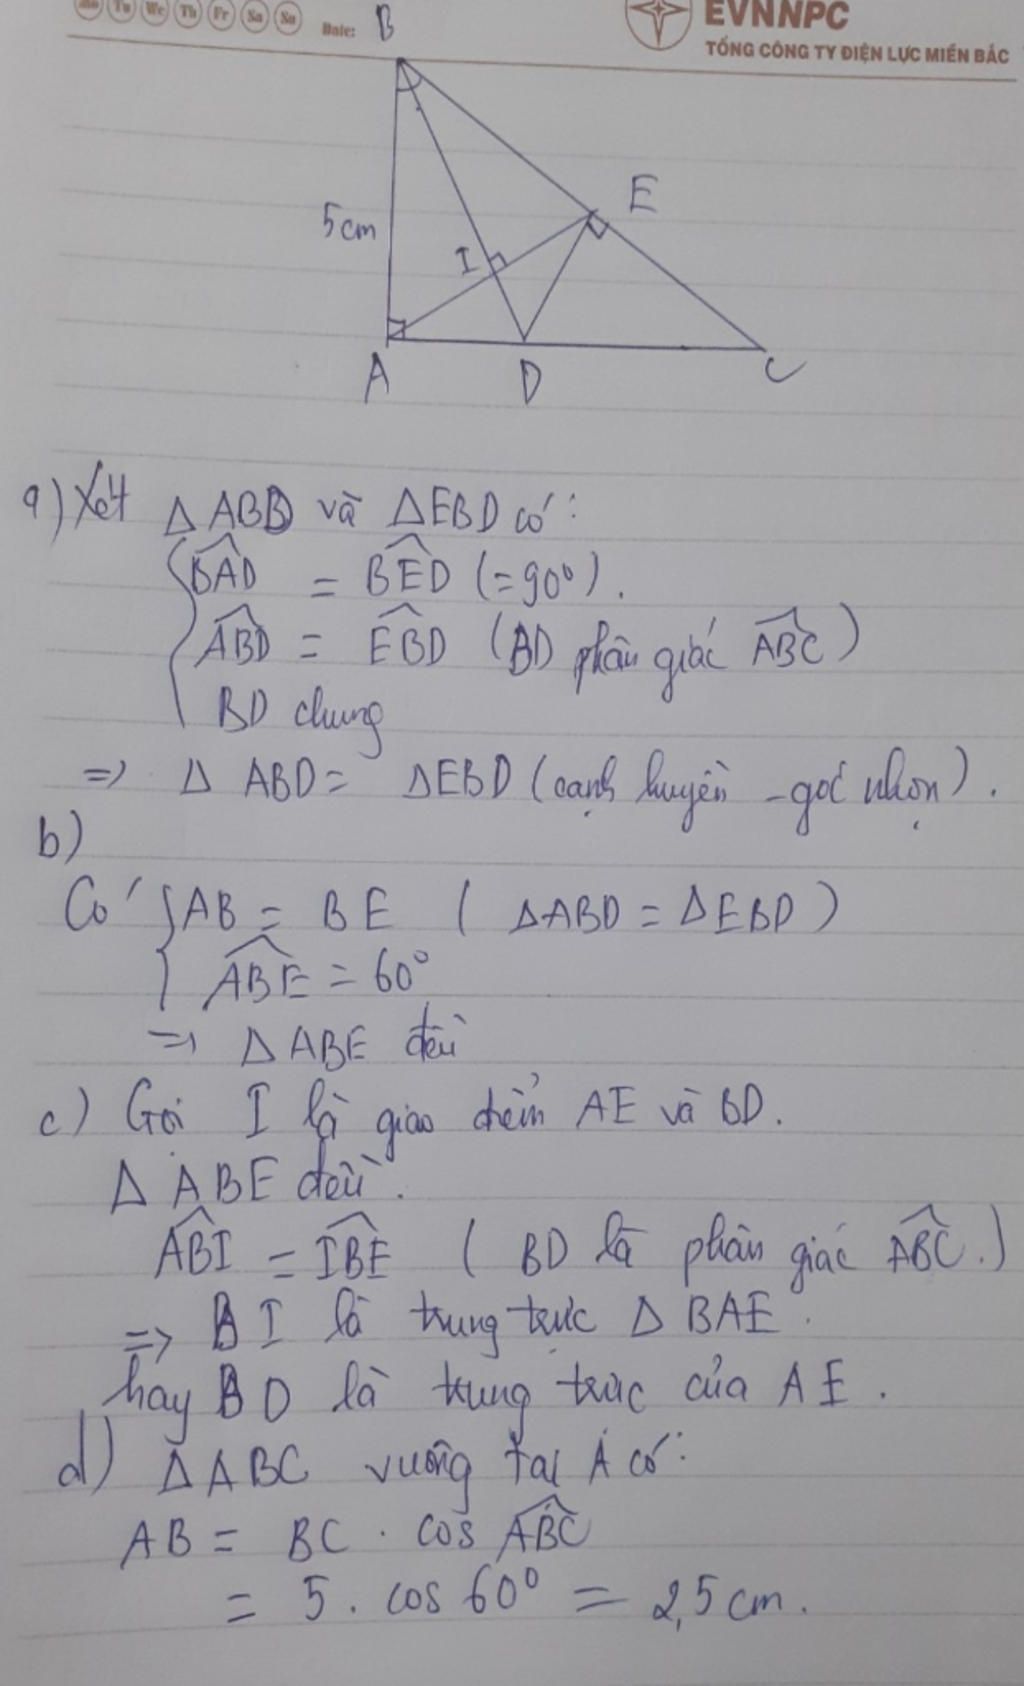 Mo Tu We Th Fr Sa Su Date:
EVNNPC
TỔNG CÔNG TY ĐIỆN LỰC MIỀN BẮC
B
E
5cm
I
A D C
a) Xét Δ ABD và ΔEBD có:
BAD = BED (=90°).
ABD = EBD (BD phân giác ABC)
BD chung
=> Δ ABD = ΔEBD (cạnh huyền - góc nhọn).
b)
Có { AB = BE ( ΔABD = ΔEBD )
ABE = 60°
=> Δ ABE đều
c) Gọi I là giao điểm AE và BD.
Δ ABE đều.
ABI = IBE ( BD là phân giác ABC.)
=> BI là trung trực Δ BAE.
hay BD là trung trực của AE.
d) Δ ABC vuông tại A có:
AB = BC . cos ABC
= 5 . cos 60° = 2,5 cm.